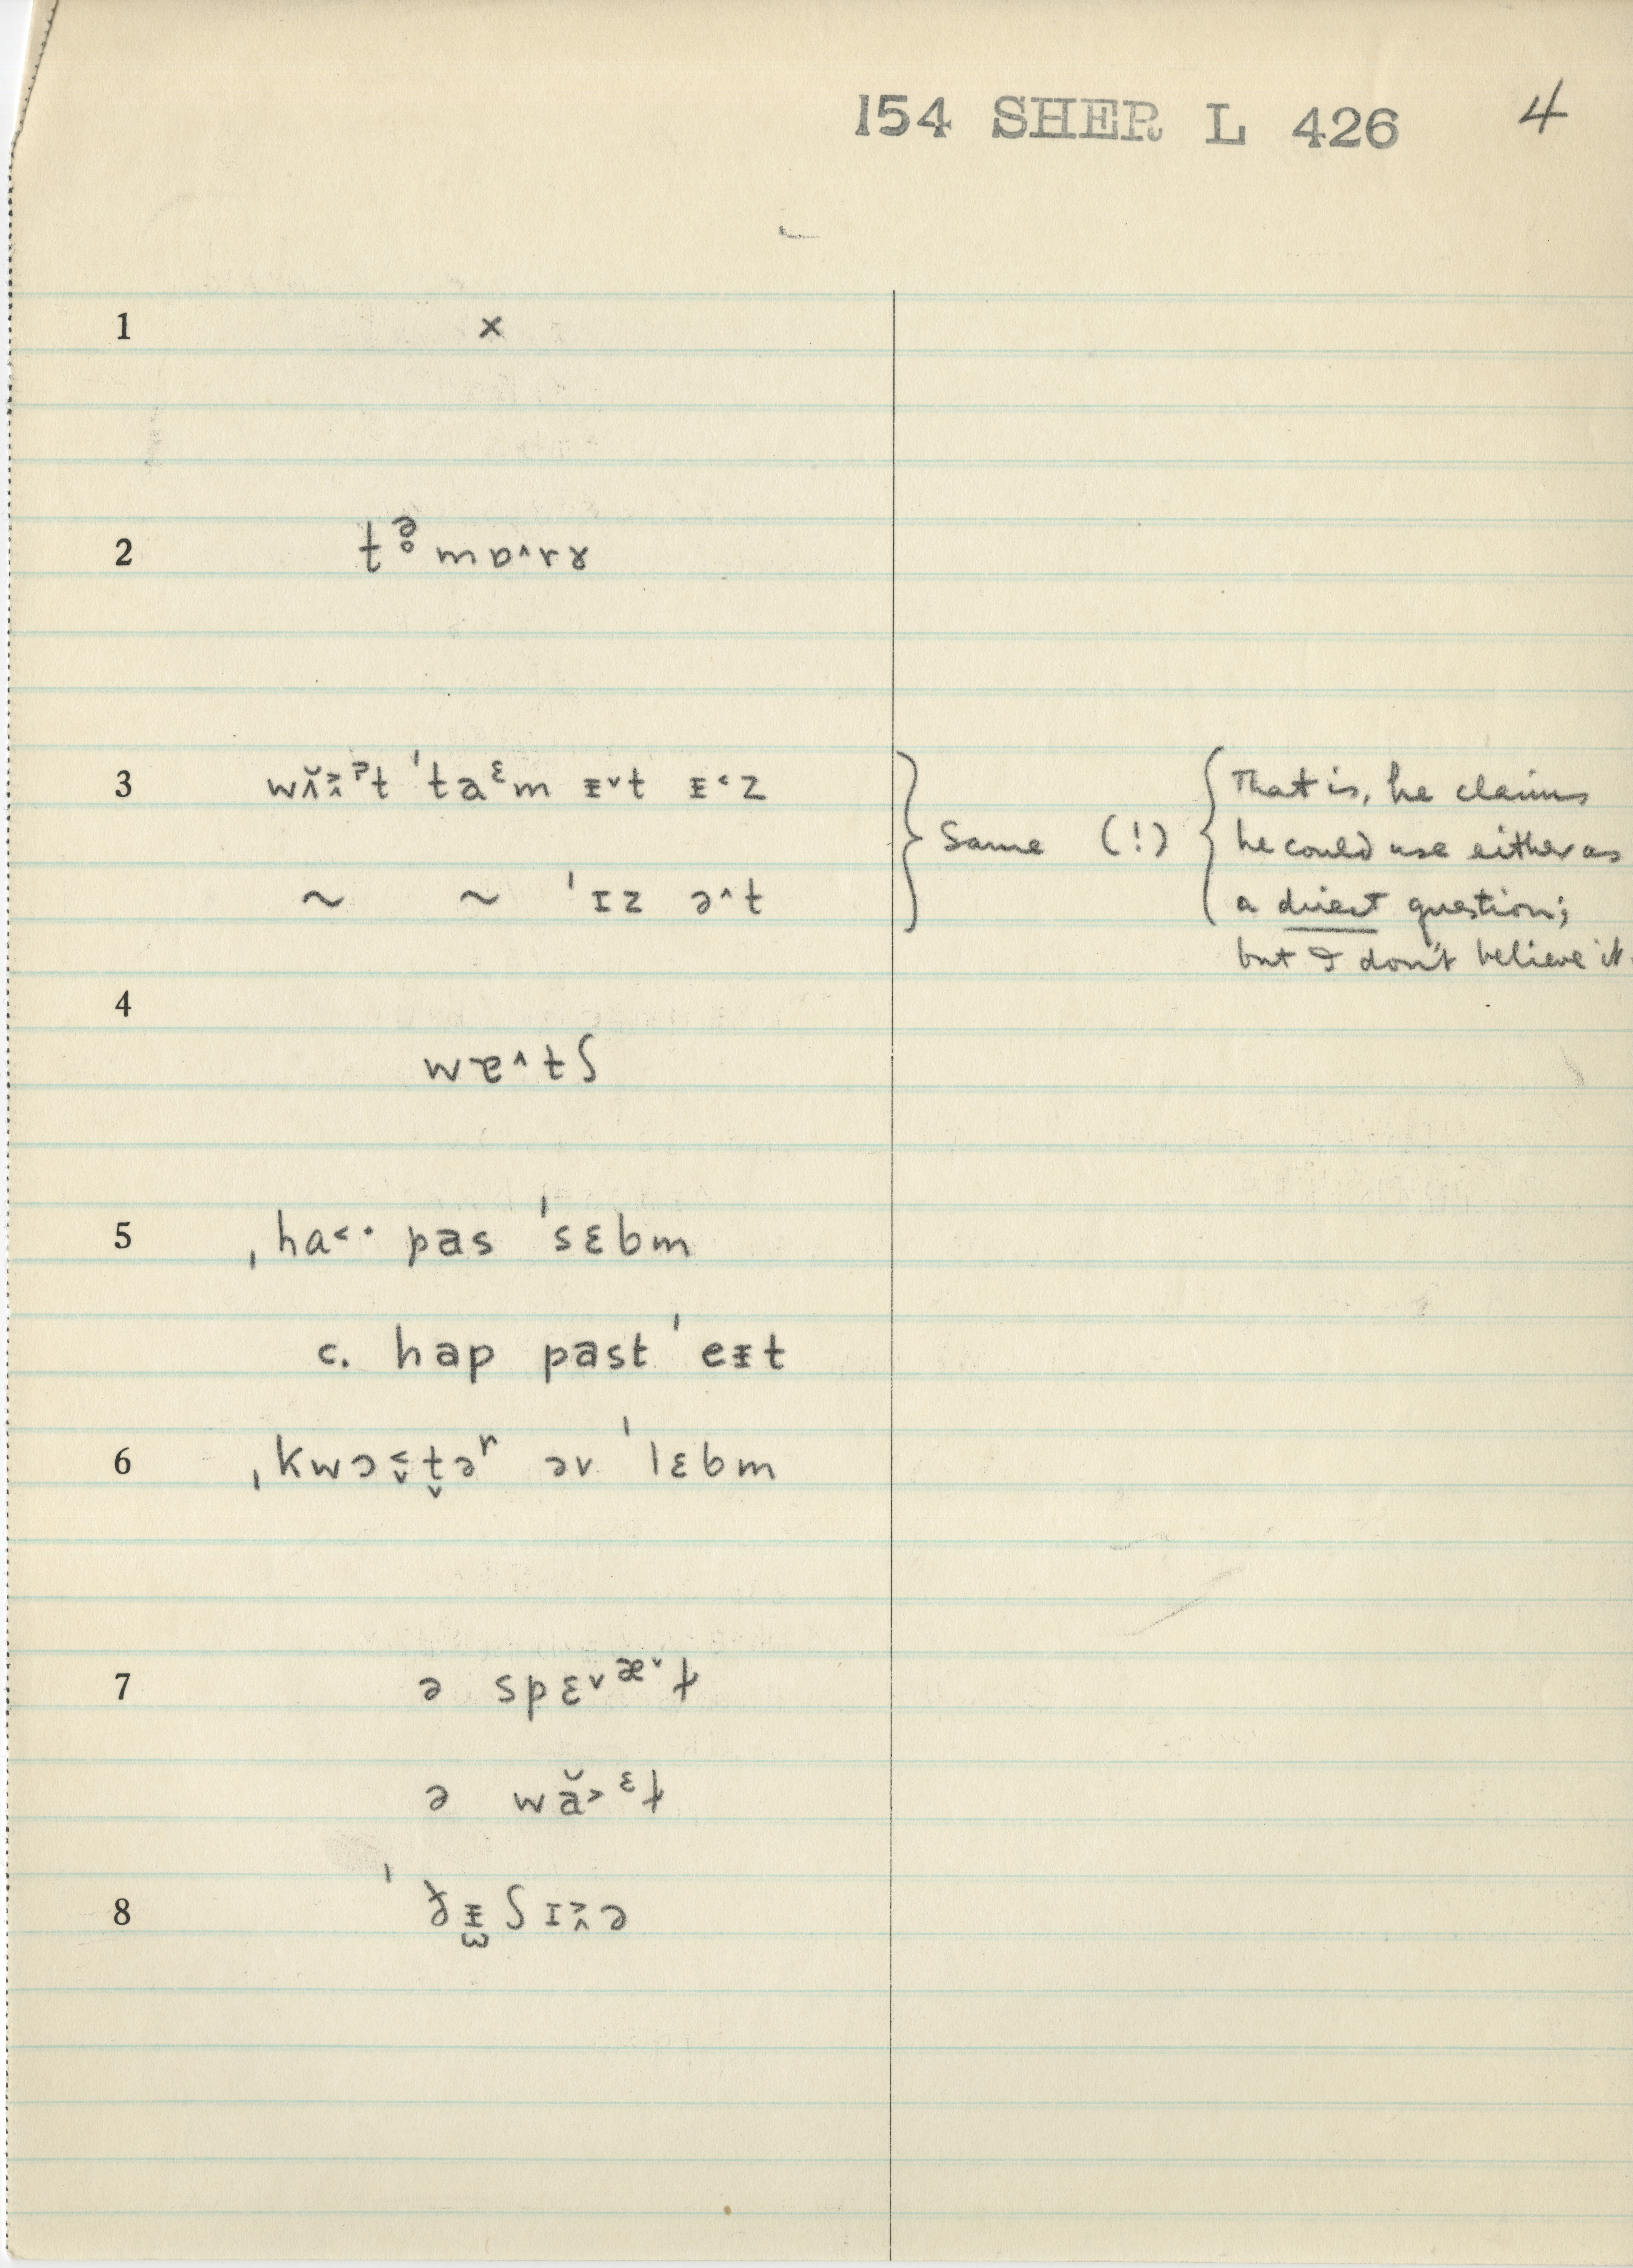 154 SHER L 426 4
1 ×
2 tə̥mɒ˄rɤ
3 wɪ̆˃˄ᵊt ˈtaᵋm ᵻ˅t ᵻ˂z
~ ~ ˈɪz ə˄t
Same (!)
That is, he claims
he could use either as
a direct question;
but I don't believe it.
4 wɐ˄tʃ
5 ˌha˂· pas ˈsɛbm
c. hap past ˈeᵻt
6 ˌkwɔ̬˂t̬əʳ əv ˈlɛbm
7 ə spɛ˅ᵆ˅ɫ
ə wă˃ᵋɫ
8 ʃɪ˃˄ə